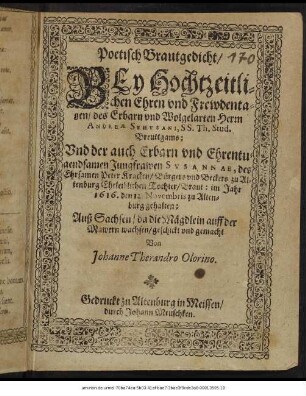 Poetisch Brautgedicht/ 170
BEy Hochtzeitli-
chen Ehren vnd Frewdenta-
gen/ des Erbarn vnd Wolgelarten Herrn
SS. Th. Stud.
Breutgams:
Vnd der auch Erbarn vnd Ehrentu-
gendsamen Jungfrawen SVSANNAE, des
Ehrsamen Peter Krausen/ Bürgers vnd Beckers zu Al-
tenburg Eheleiblichen Tochter/ Braut: im Jahr
1616. den 12. Novembris zu Alten-
burg gehalten:
Auß Sachsen/ da die Mägdlein auff der
Mawern wachsen/ geschickt vnd gemacht
Von
Johanne Therandro Olorino.
Gedruckt zu Altenburg in Meissen/
durch Johann Meuschken.